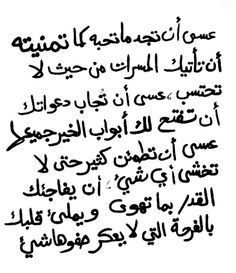 عسى أن تجد ما تحبه كما تمنيته
أن تأتيك المسرات من حيث لا
تحتسب، عسى أن تجاب دعواتك
أن تفتح لك أبواب الخير جميعها
عسى أن تطمئن كثير حتى لا
تخشى أي شيء، أن يفاجئك
القدر بما تهوى ويملئ قلبك
بالفرحة التي لا يعكر صفوها شيئ